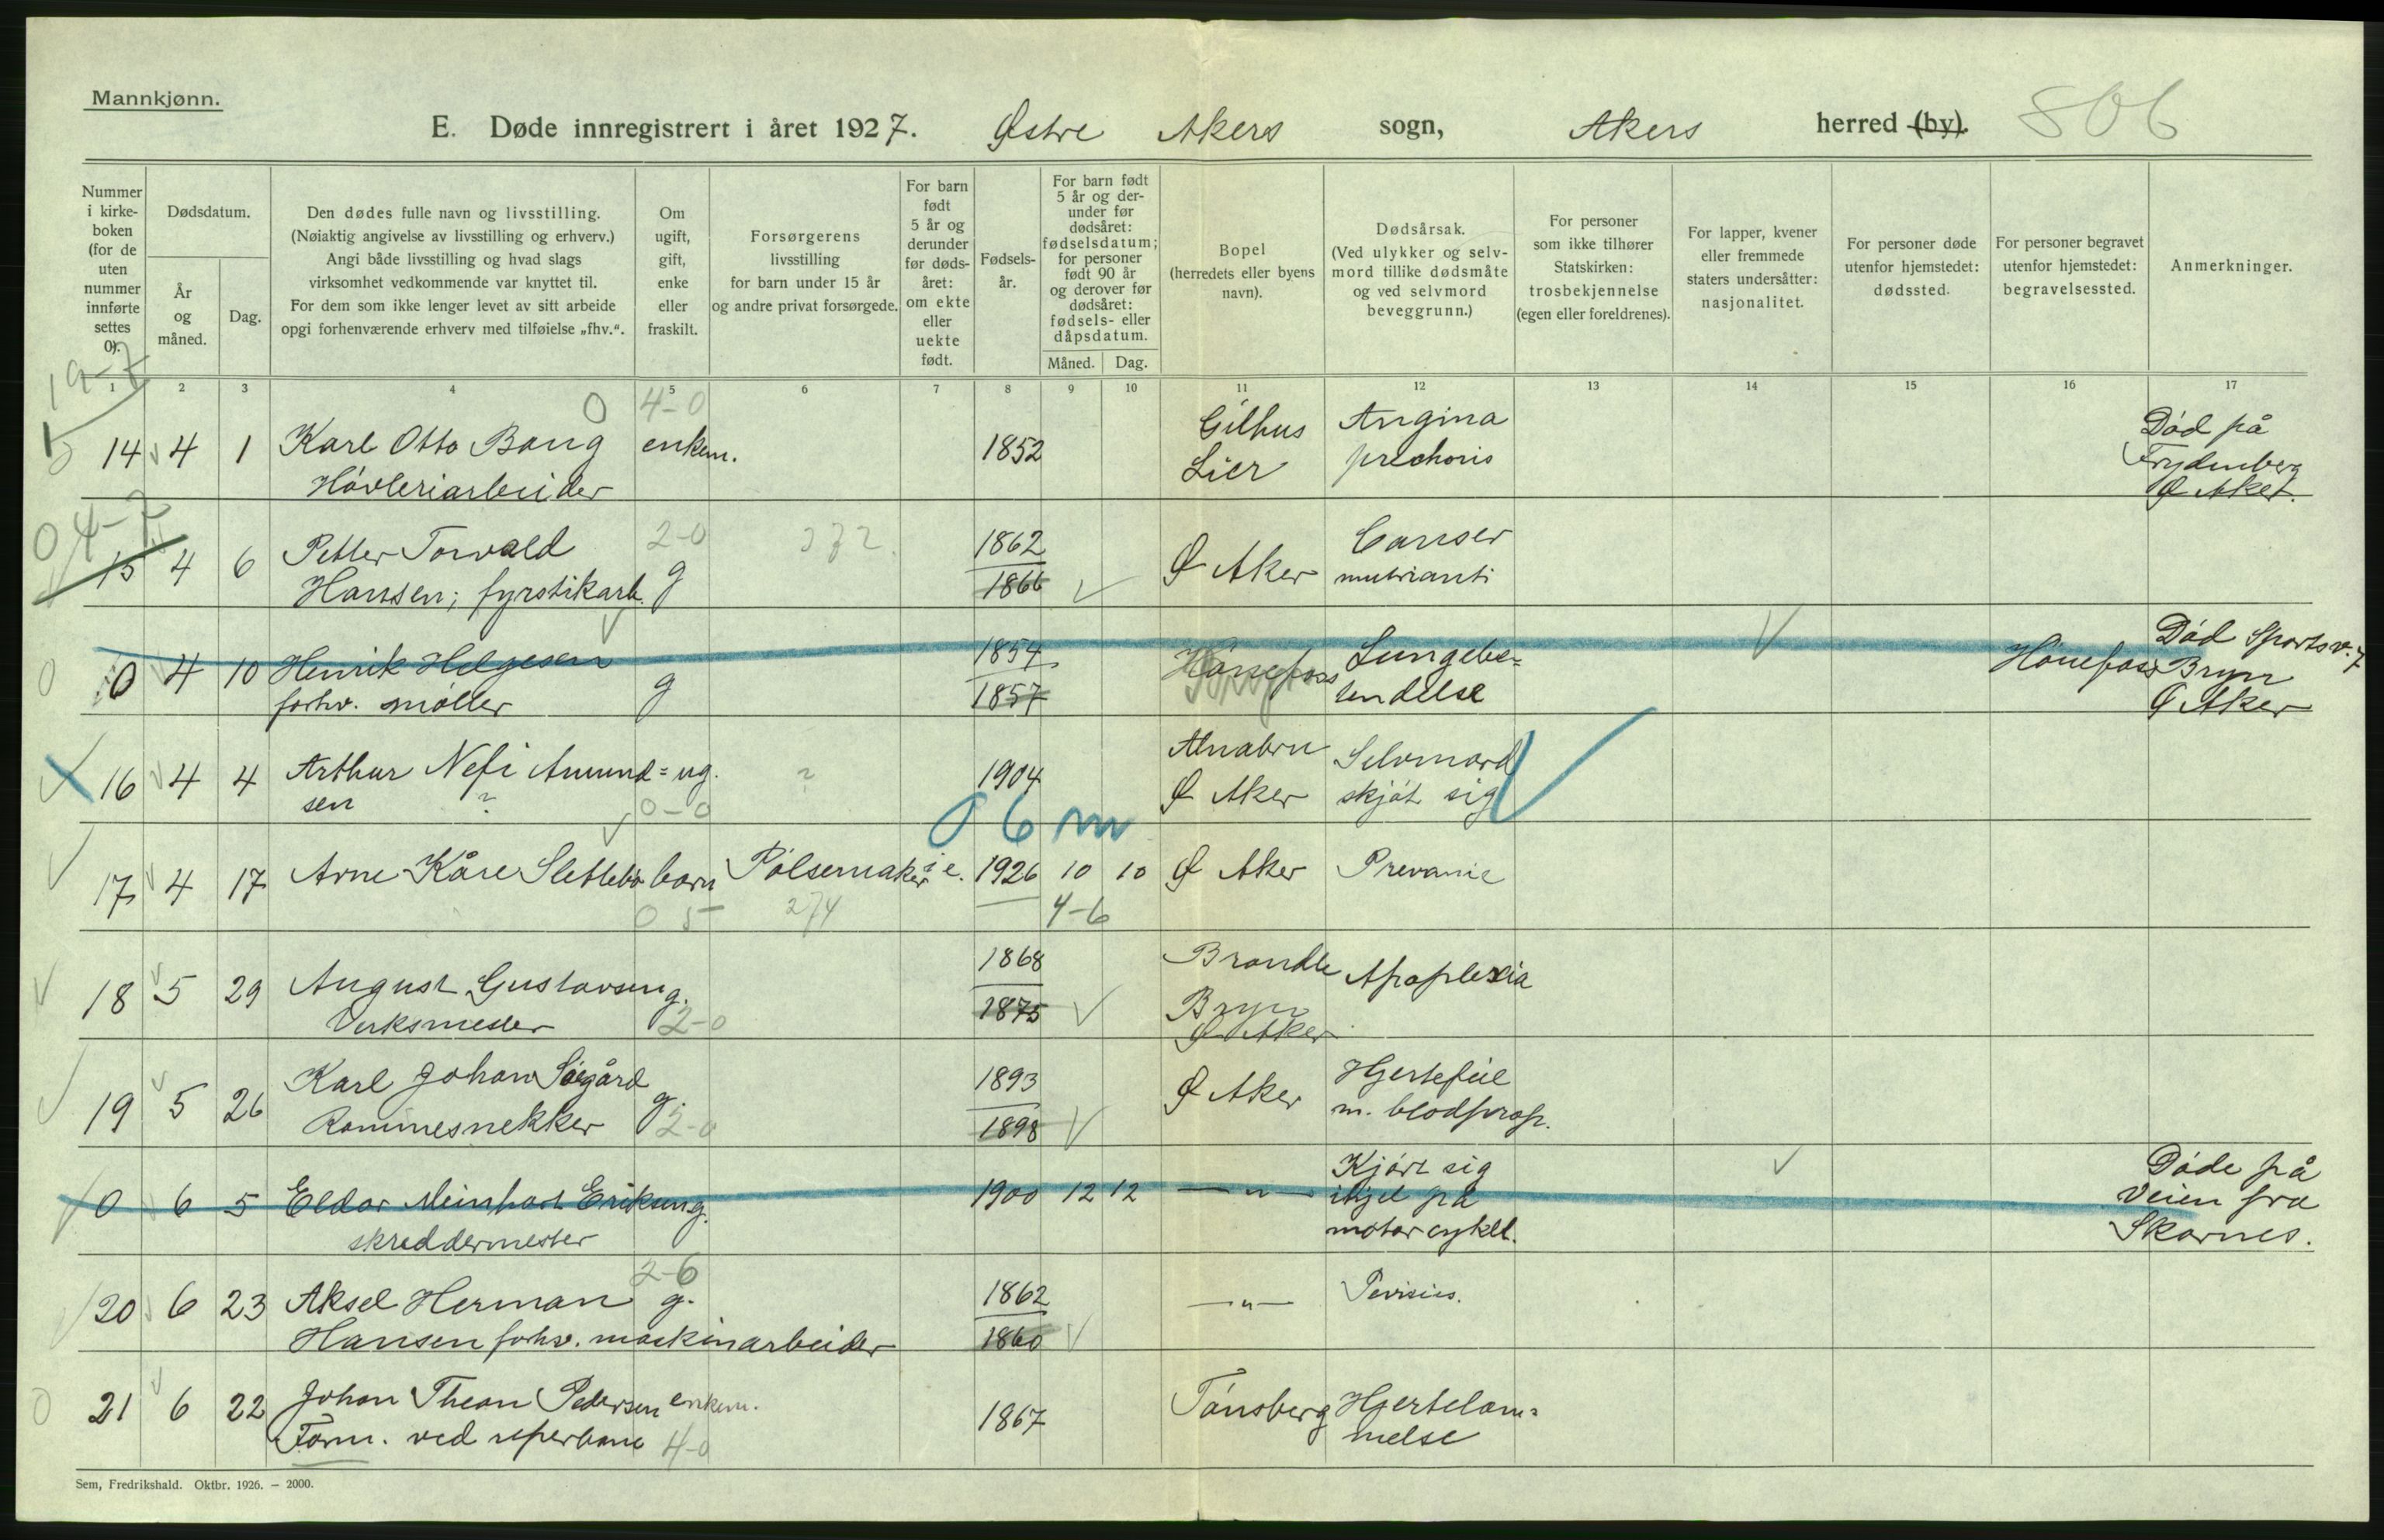 Mannkjønn.
E. Døde innregistrert i året 1927. Østre Akers sogn, Akers herred (by). 806
Nummer i kirkeboken (for de uten nummer innførte settes 0).
Dødsdatum.
År og måned.
Dag.
Den dødes fulle navn og livsstilling.
(Nøiaktig angivelse av livsstilling og erhverv.)
Angi både livsstilling og hvad slags
virksomhet vedkommende var knyttet til.
For dem som ikke lenger levet av sitt arbeide
opgi forhenværende erhverv med tilføielse „fhv.“.
Om ugift, gift, enke eller fraskilt.
Forsørgerens
livsstilling
for barn under 15 år
og andre privat forsørgede.
For barn født 5 år og derunder før dødsåret: om ekte eller uekte født.
Fødselsår.
For barn født 5 år og derunder før dødsåret: fødselsdatum; for personer født 90 år og derover før dødsåret: fødsels- eller dåpsdatum.
Måned. Dag.
Bopel
(herredets eller byens navn).
Dødsårsak.
(Ved ulykker og selvmord tillike dødsmåte og ved selvmord beveggrunn.)
For personer som ikke tilhører Statskirken: trosbekjennelse (egen eller foreldrenes).
For lapper, kvener eller fremmede staters undersåtter: nasjonalitet.
For personer døde utenfor hjemstedet: dødssted.
For personer begravet utenfor hjemstedet: begravelsessted.
Anmerkninger.
1 2 3 4 5 6 7 8 9 10 11 12 13 14 15 16 17
19-7 0 4-0
14 4 1 Karl Otto Bang enkem. 1852 Gilhus Lier Angina Død på
Høvleriarbeider Frydenberg
Ø Aker.
04-7 2-0
15 4 6 Petter Torvald g 1862 1866 Ø Aker Canser
Hansen; fyrstikarb.
0 4 10 Henrik Helgesen g 1854 1857 Hønefoss Lungebetendelse Hønefoss Død Sportsv. 7
forhv. møller Bryn
Ø Aker
16 4 4 Arthur Nefi Amund= ug. ? 1904 Alnabru Selvmord
sen ? 0-0 Ø Aker skjøt sig
0 6 m
17 4 17 Arne Kåre Slettebø barn Pølsemaker e. 1926 10 10 Ø Aker
0 5 274 4-6
18 5 29 August Gustavsen g. 1868 1875 Bryn Ø Aker Apoplexia
Verksmester 2-0
19 5 26 Karl Johan Søegård g. 1893 1898 Ø Aker Hjertefeil
Rammesnekker 2-0 m. blodprop.
0 6 5 Eldar Meinhart Eriksen g. 1900 12 12 — " — Kjørt sig Døde på
skreddermester ihjel på veien fra
motorcykel. Skarnes.
2-6
20 6 23 Aksel Herman g. 1862 1860 — " —
Hansen forhv. maskinarbeider
21 6 22 Johan Thean Pedersen enkem. 1867 Tønsberg Hjertelam=
Form. ved reperbane 4-0 melse
Sem, Fredrikshald. Oktbr. 1926. — 2000.